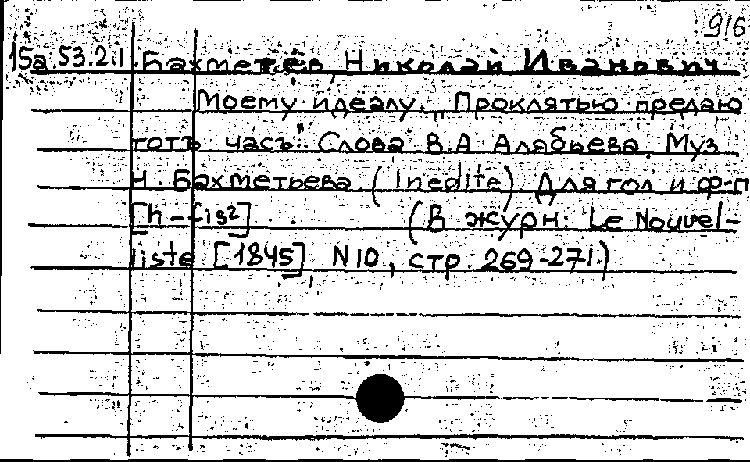 916
15а 53.2.1 Бахметев, Николай Иванович
Моему идеалу. "Проклятью предаю
тотъ часъ". Слова В.А Алябьева. Муз
Н. Бахметьева. (Inedite) Для гол и ф-п
[h-fis²] (В журн: Le Nouvel-
liste [1845] N10, стр. 269-271.)